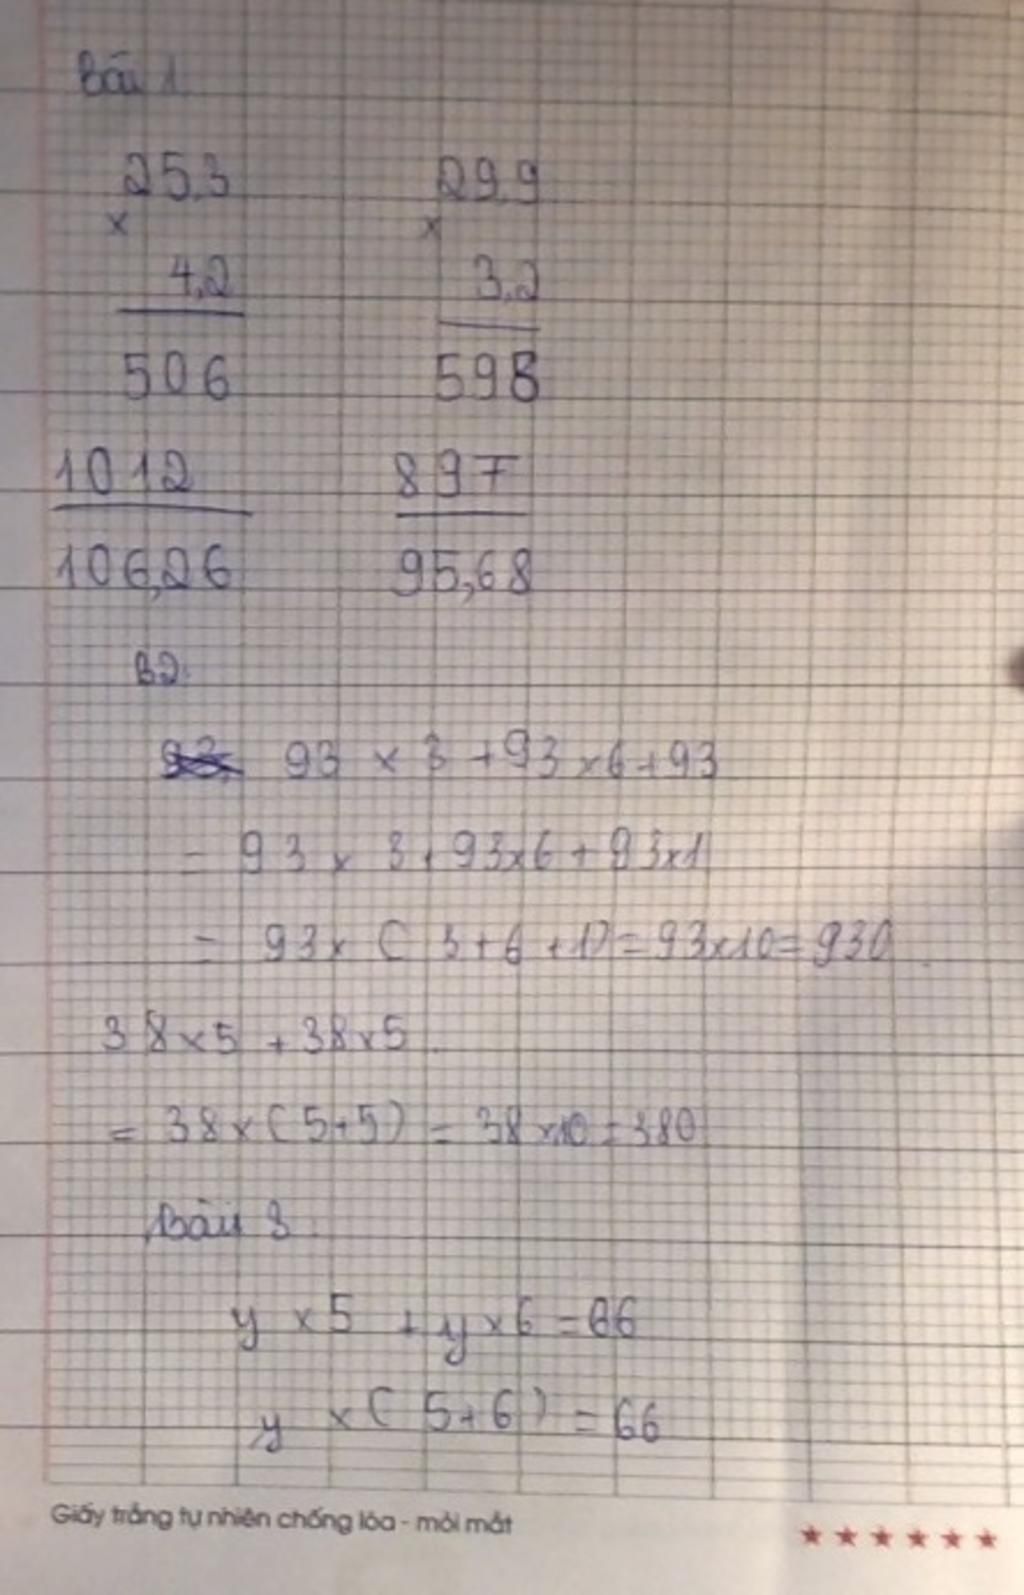 Bài 1
25,3 29,9
× ×
4,2 3,2
506 598
1012 897
106,26 95,68
B2:
93 × 3 + 93 × 6 + 93
= 93 × 3 + 93 × 6 + 93 × 1
= 93 × ( 3 + 6 + 1) = 93 × 10 = 930
38 × 5 + 38 × 5
= 38 × ( 5 + 5 ) = 38 × 10 = 380
Bài 3
y × 5 + y × 6 = 66
y × ( 5 + 6 ) = 66
Giấy trắng tự nhiên chống lóa - mỏi mắt